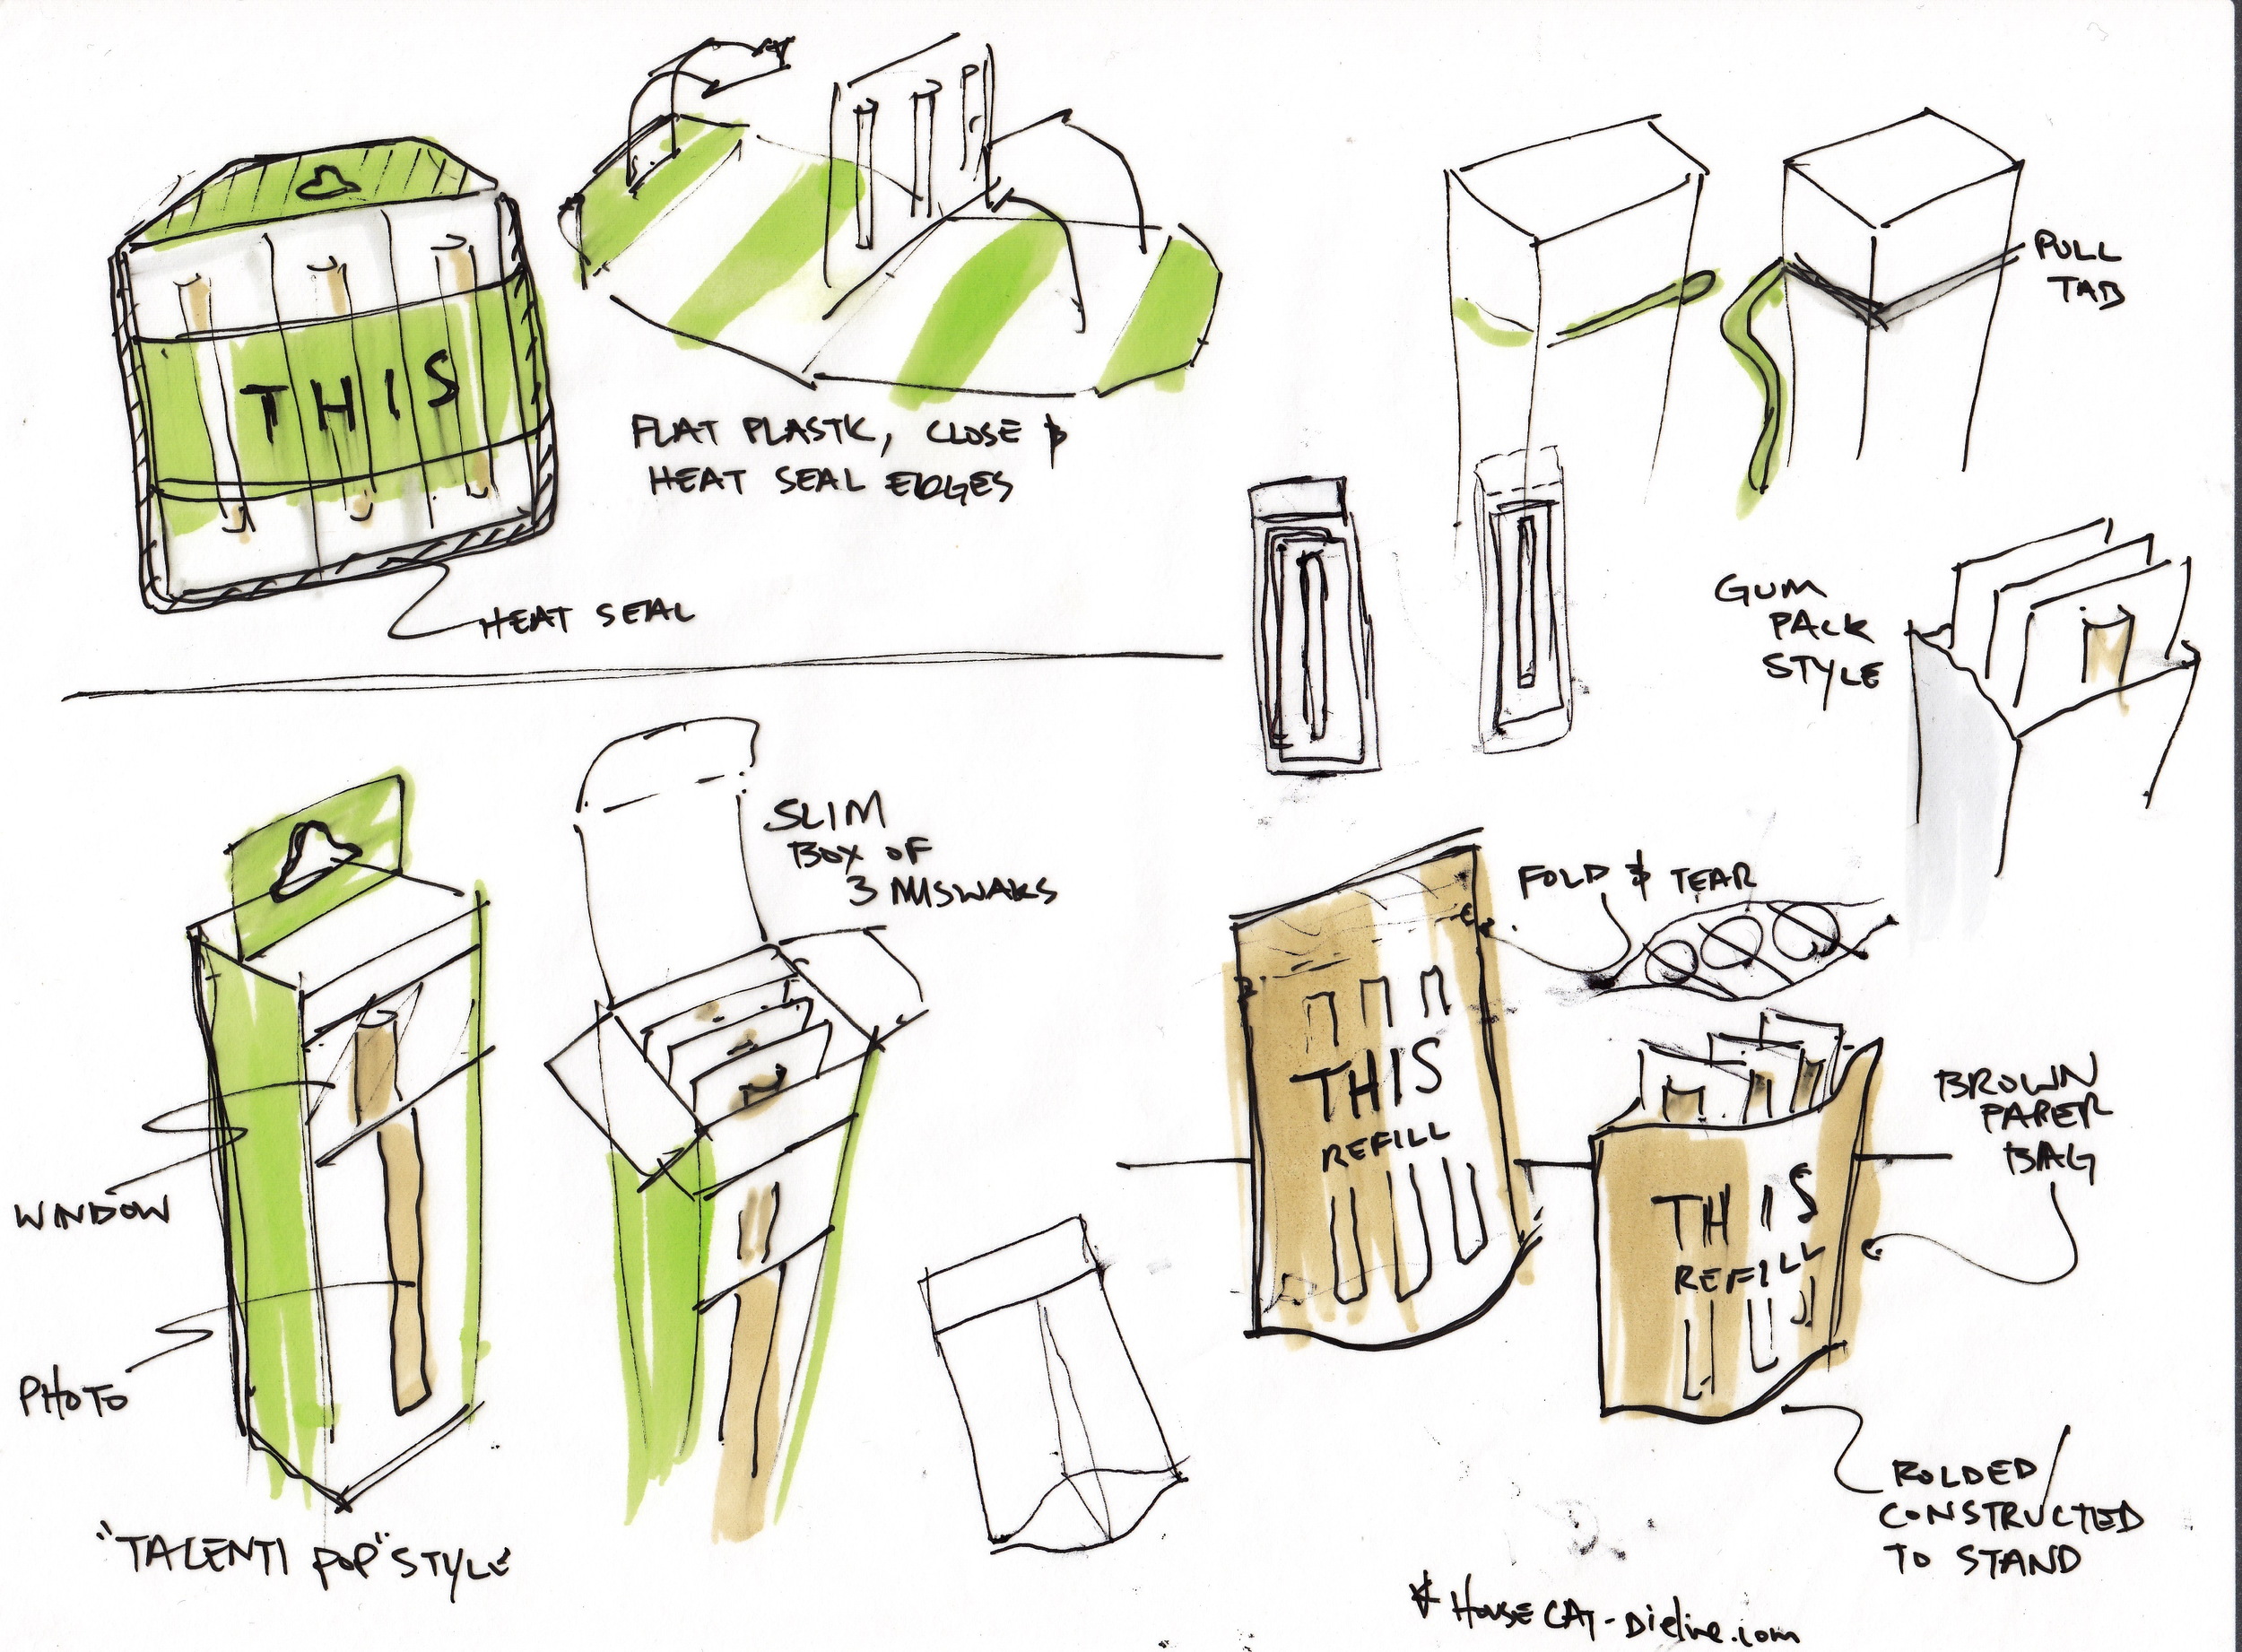 THIS
FLAT PLASTIC, CLOSE &
HEAT SEAL EDGES
HEAT SEAL
PULL
TAB
GUM
PACK
STYLE
SLIM
BOX OF
3 MISWAKS
WINDOW
PHOTO
"TALENTI POP" STYLE
FOLD & TEAR
THIS
REFILL
THIS
REFILL
BROWN
PAPER
BAG
FOLDED/
CONSTRUCTED
TO STAND
* HOUSE CAT - Dieline.com